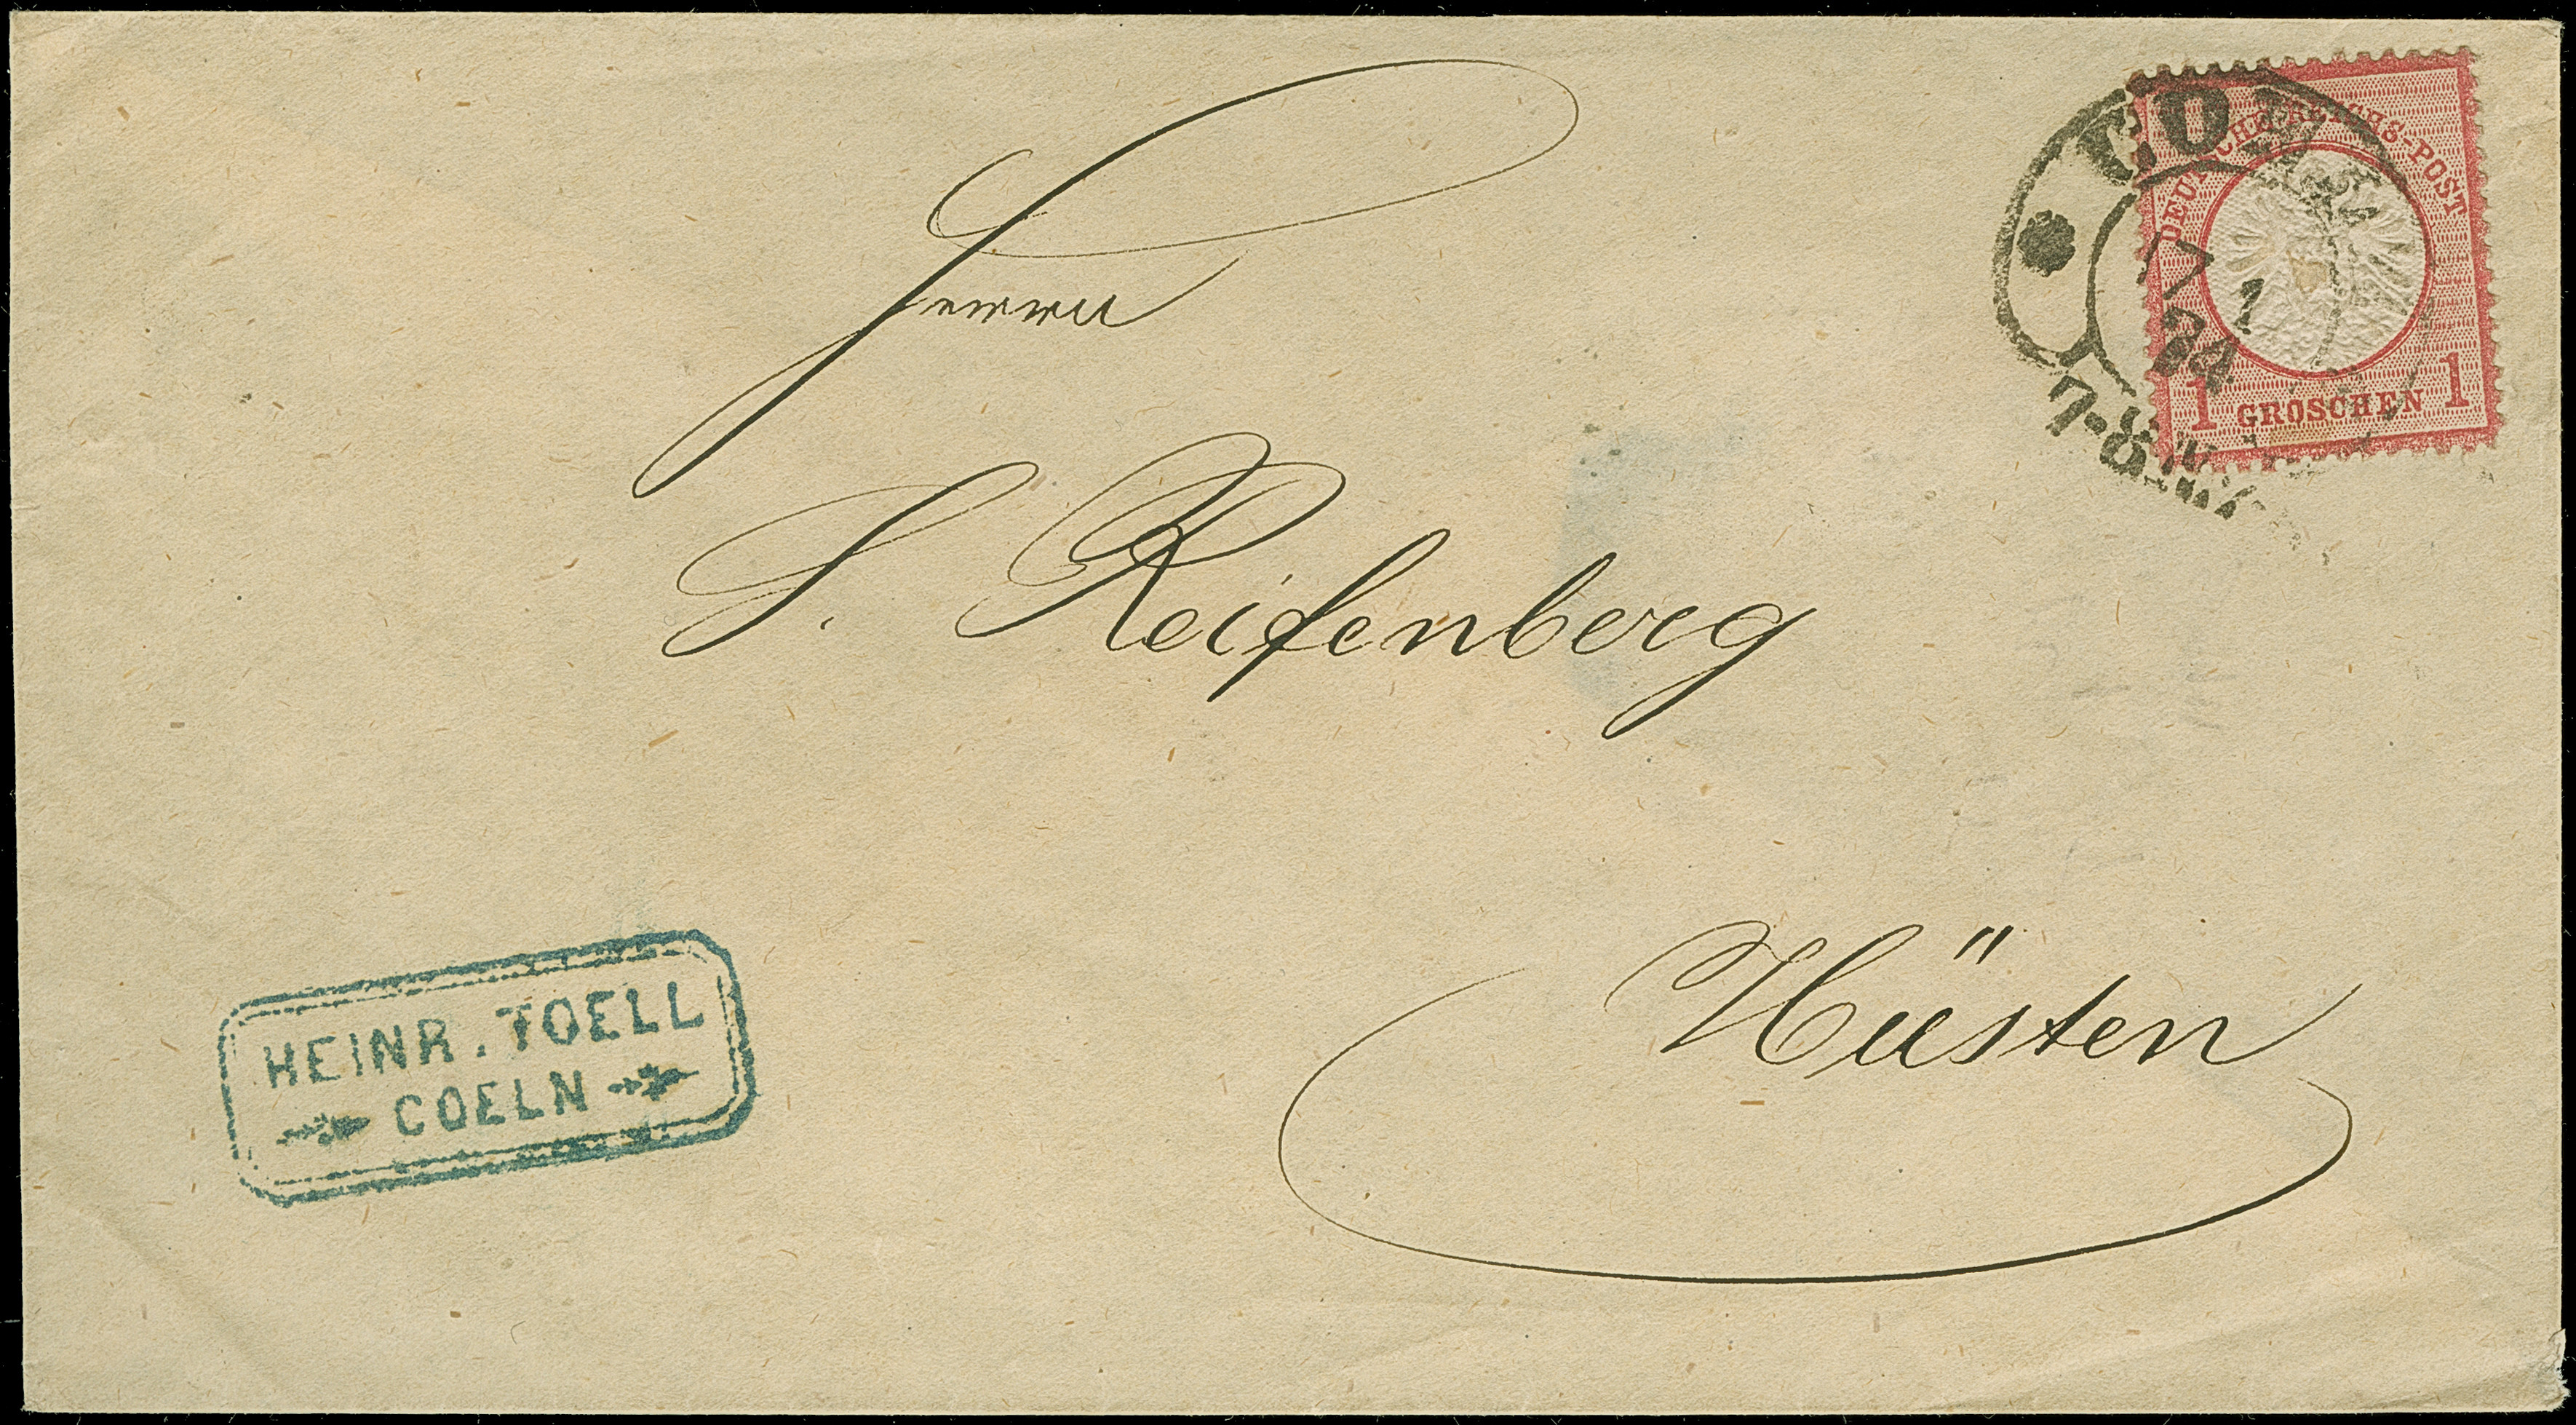 Herrn
S. Reifenberg
Hüsten
HEINR. TOELL
COELN
DEUTSCHE REICHS-POST
1 GROSCHEN 1
CÖLN
17 1
74
7-8